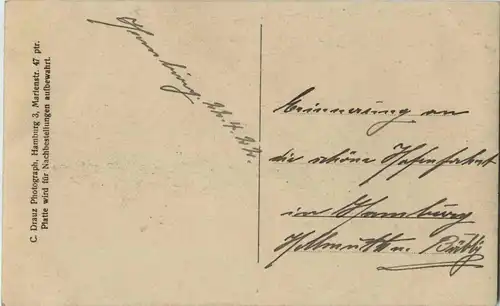 C. Drauz Photograph, Hamburg 3, Marienstr. 47 ptr.
Platte wird für Nachbestellungen aufbewahrt.
Hamburg, 24.4.27.
Erinnerung an
die schöne Hafenfahrt
in Hamburg
Hellmuth u. Bübbi